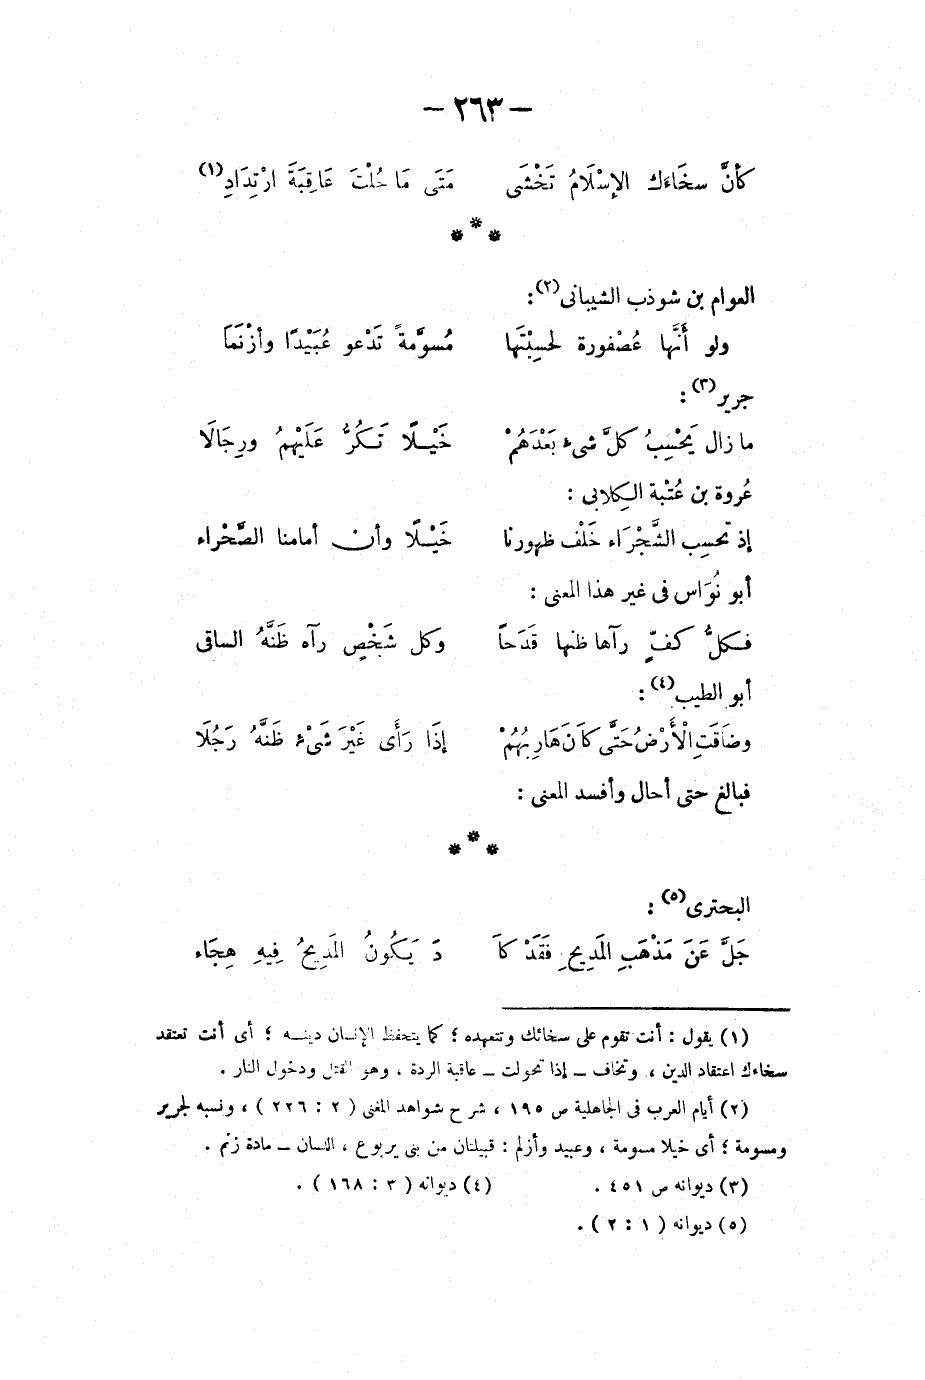 — ٢٦٣ —
كأنَّ سخَاءَك الإسْلَامُ تَخْشَى مَتَى مَا حُلْتَ عَاقِبَةَ ارْتِدَادِ(١)
* * *
العوام بن شوذب الشيبانى(٢) :
ولو أَنَّها عُصْفورة لحسِبْتَها مُسوَّمةً تَدْعو عُبَيْدًا وأزْنَمَا
جرير(٣) :
ما زال يَحْسِبُ كلَّ شىء بَعْدَهُمْ خَيْلًا تَكُرُّ عَلَيْهِمُ ورِجَالَا
عُروة بن عُتْبة الكِلابى :
إذ تحسِب الشَّجْرَاء خَلْف ظهورنا خَيْلًا وأن أمامنا الصَّحْراء
أبو نُوَاس فى غير هذا المعنى :
فكلُّ كفٍّ رآها ظنها قَدَحاً وكل شَخْصٍ رآه ظَنَّهُ الساقى
أبو الطيب(٤) :
وضَاقَتِ الْأَرْضُ حَتَّى كَانَ هَارِبُهُمْ إذَا رَأَى غَيْرَ شَىْءٍ ظَنَّهُ رَجُلَا
فبالغ حتى أحال وأفسد المعنى :
* * *
البحترى(٥) :
جَلَّ عَنْ مَذْهَبِ المَدِيحِ فَقَدْ كاَ دَ يَكُونُ المَدِيحُ فِيهِ هِجَاء
(١) يقول : أنت تقوم على سخائك وتتعهده ؛ كما يتحفظ الإنسان دينه ؛ أى أنت تعتقد
سخاءك اعتقاد الدين ، وتخاف – إذا تحولت – عاقبة الردة ، وهو القتل ودخول النار .
(٢) أيام العرب فى الجاهلية ص ١٩٥ ، شرح شواهد المغنى ( ٢ : ٢٢٦ ) ، ونسبه لجرير
ومسومة ؛ أى خيلا مسومة ، وعبيد وأزنم : قبيلتان من بنى يربوع ، اللسان – مادة زنم .
(٣) ديوانه ص ٤٥١ . (٤) ديوانه ( ٣ : ١٦٨ ) .
(٥) ديوانه ( ١ : ٢ ) .